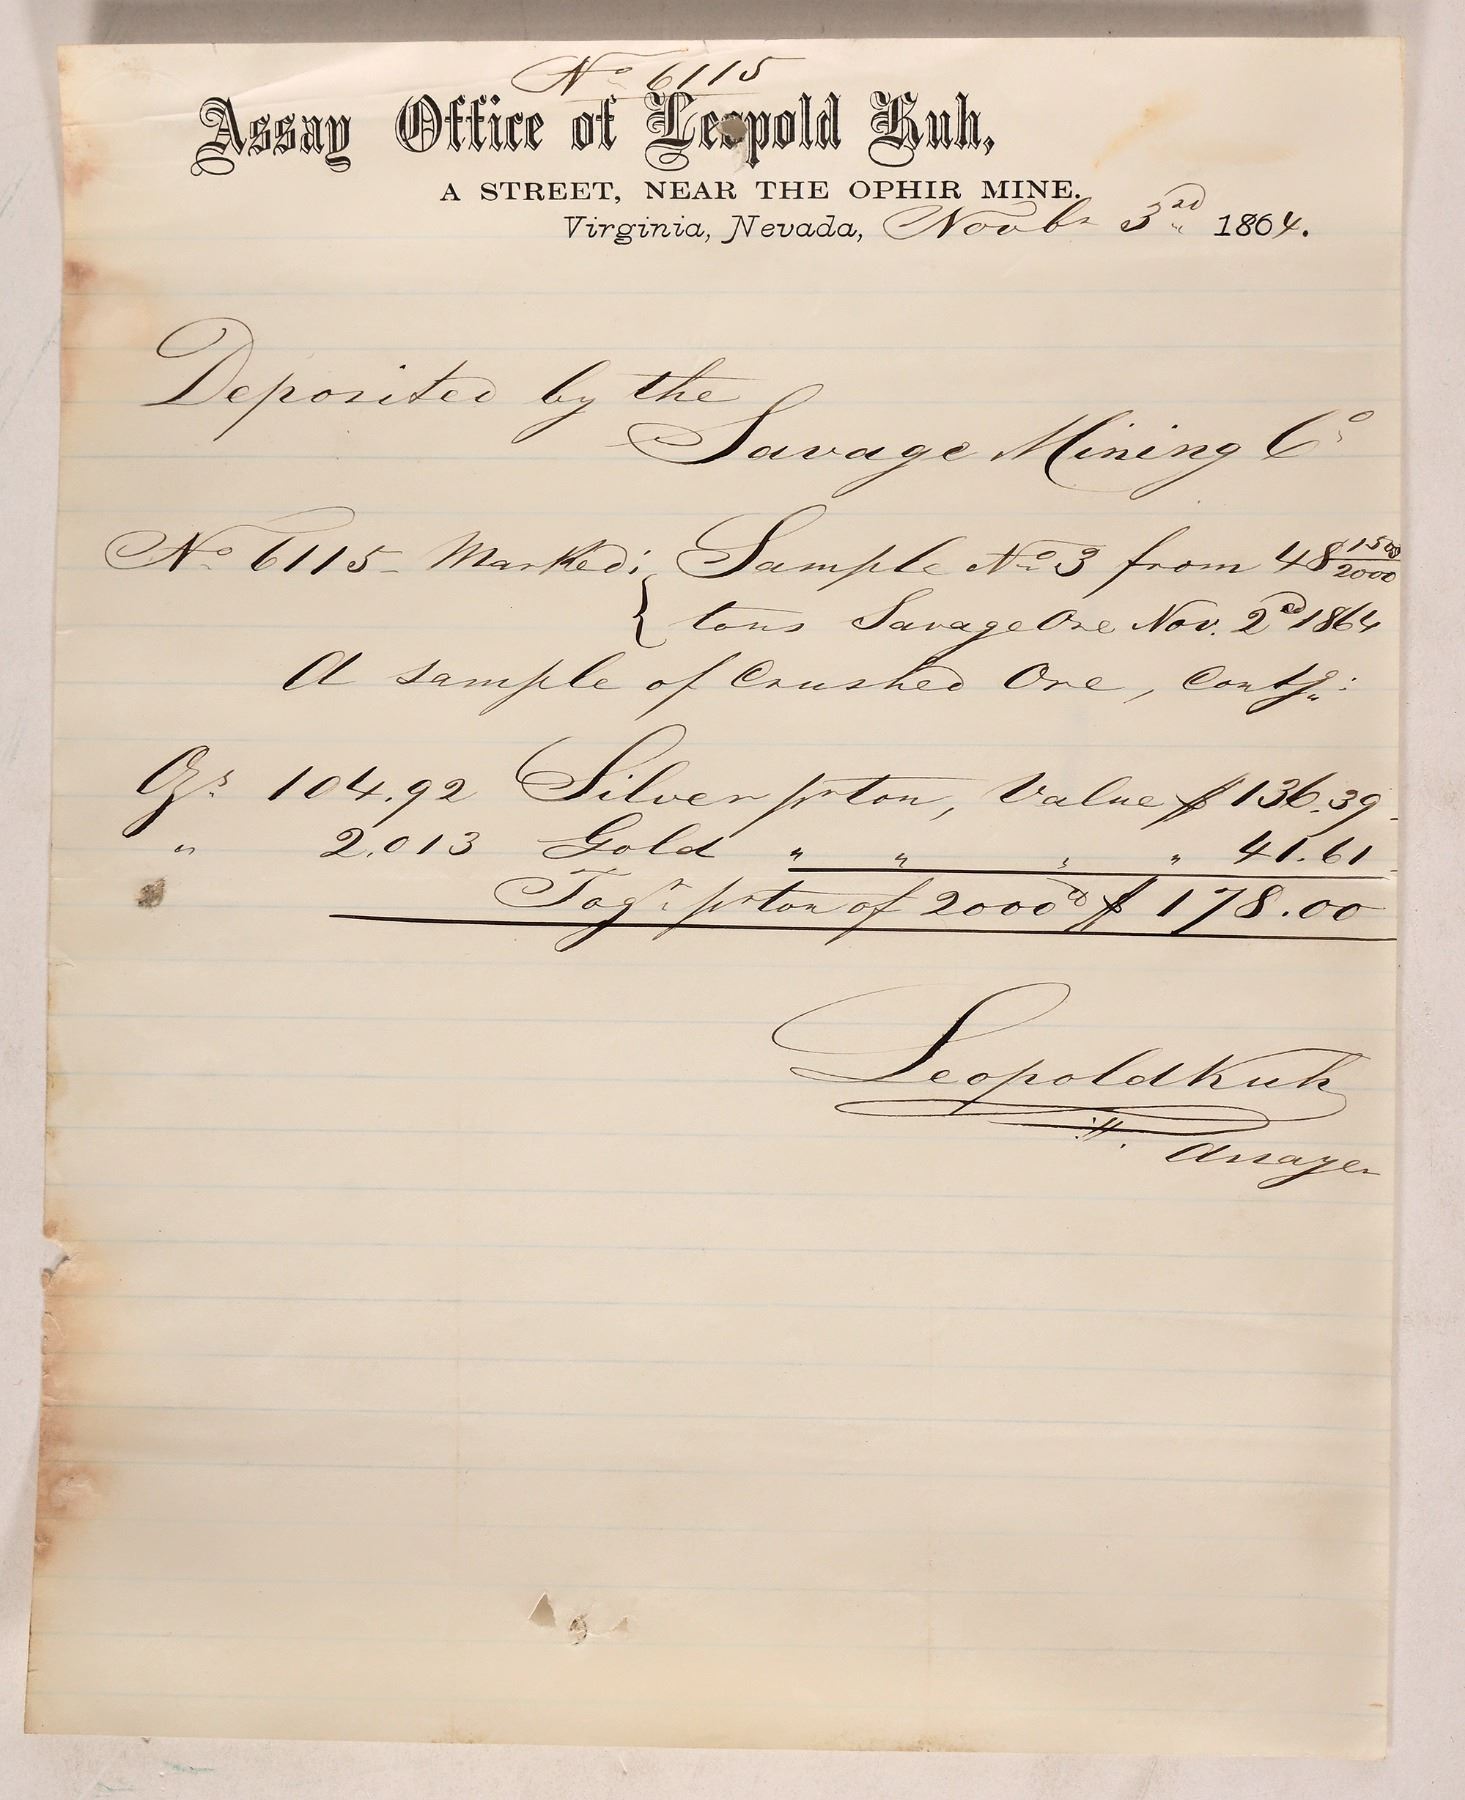 No 6115
Assay Office of Leopold Kuh,
A STREET, NEAR THE OPHIR MINE.
Virginia, Nevada, Novbr 3rd 1864.
Deposited by the
Savage Mining Co
No 6115 - Marked: { Sample No 3 from 48 1500/2000
tons Savage Ore Nov. 2d 1864
A sample of Crushed Ore, Contg:
Ozs 104.92 Silver pr ton, Value $ 136.39
" 2.013 Gold " " " " 41.61
Togr pr ton of 2000 $ 178.00
Leopold Kuh
Assayer